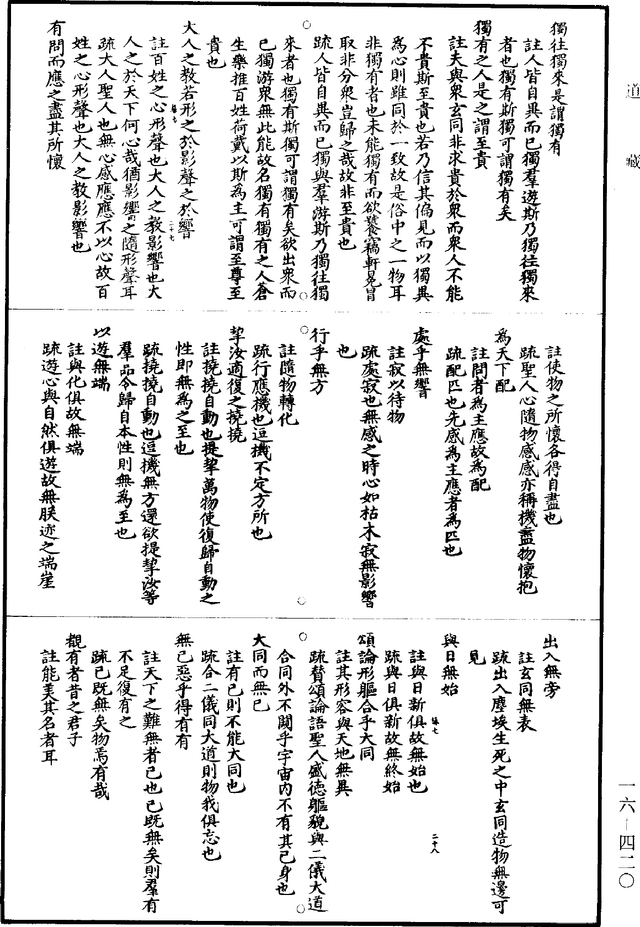 道藏
獨往獨來是謂獨有
註人皆自異而已獨羣遊斯乃獨往獨來
者也獨有斯獨可謂獨有矣
獨有之人是之謂至貴
註夫與衆玄同非求貴於衆而衆人不能
不貴斯至貴也若乃信其偏見而以獨異
為心則雖同於一致故是俗中之一物耳
非獨有者也未能獨有而欲饕竊軒冕冒
取非分衆豈歸之哉故非至貴也
疏人皆自異而已獨與羣游斯乃獨往獨
來者也獨有斯獨可謂獨有矣欲出衆而
已獨游衆無此能故名獨有獨有之人蒼
生樂推百姓荷戴以斯為主可謂至尊至
貴也
大人之教若形之於影聲之於響
註百姓之心形聲也大人之教影響也大
人之於天下何心哉猶影響之隨形聲耳
疏大人聖人也無心感應應不以心故百
姓之心形聲也大人之教影響也
有問而應之盡其所懷
註使物之所懷各得自盡也
疏聖人心隨物感感亦稱機盡物懷抱
為天下配
註問者為主應故為配
疏配匹也先感為主應者為匹也
處乎無響
註寂以待物
疏處寂也無感之時心如枯木寂無影響
也
行乎無方
註隨物轉化
疏行應機也逗機不定方所也
挈汝適復之撓撓
註撓撓自動也提挈萬物使復歸自動之
性即無為之至也
疏撓撓自動也逗機無方還欲提挈汝等
羣品令歸自本性則無為至也
以遊無端
註與化俱故無端
疏遊心與自然俱遊故無朕迹之端崖
出入無旁
註玄同無表
疏出入塵埃生死之中玄同造物無邊可
見
與日無始
註與日新俱故無始也
疏與日俱新故無終始
頌論形軀合乎大同
註其形容與天地無異
疏贊頌論語聖人盛德軀貌與二儀大道
合同外不闚乎宇宙內不有其己身也
大同而無己
註有己則不能大同也
疏合二儀同大道則物我俱忘也
無己惡乎得有有
註天下之難無者己也己既無矣則羣有
不足復有之
疏己既無矣物焉有哉
覩有者昔之君子
註能美其名者耳
二十七
二十八
一六－四二〇